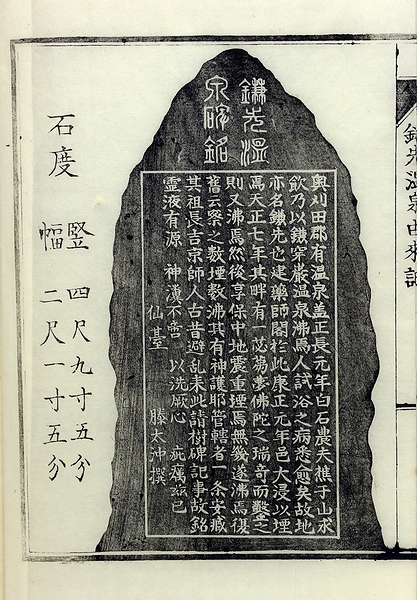 鎌先温泉由来記
鎌先温
泉碑銘
奥刈田郡有温泉盖正長元年白石農夫樵于山求
飲乃以鎌穿巌温泉沸焉人試浴之病悉愈矣故地
亦名鎌先也建薬師閣於此康正元年邑大浸以堙
焉天正七年其畔有一苾蒭夢佛陀之瑞奇而鑿之
則又沸焉然後享保中地震重堙焉無幾遂沸焉復
舊云祭之数堙数沸其有神護耶管轄者一条安蔵
其祖長吉京師人古昔避乱来此請樹碑記事故銘
霊液有源 神瀵不宻 以洗厥心 疵癘茲已
仙臺 滕太冲撰
石度
竪 四尺九寸五分
幅 二尺一寸五分